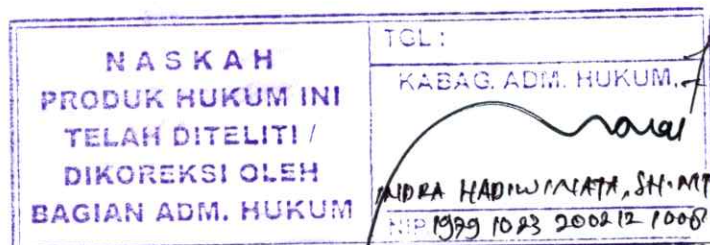 NASKAH
PRODUK HUKUM INI
TELAH DITELITI /
DIKOREKSI OLEH
BAGIAN ADM. HUKUM
TGL :
KABAG. ADM. HUKUM,
INDRA HADIWINATA, SH.MT
NIP 19791023 200212 1006